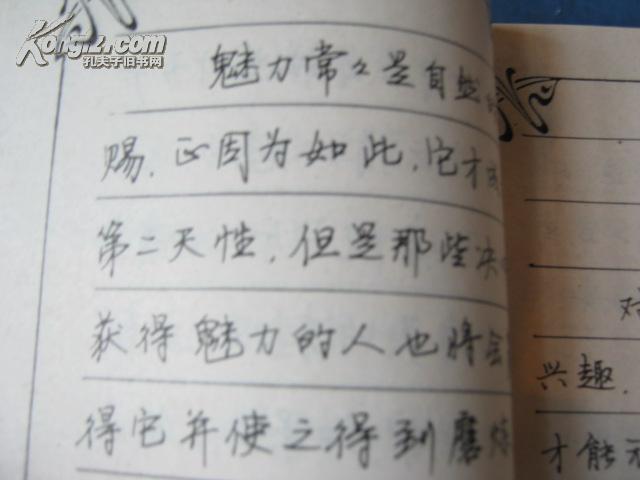 Kongfz.com
孔夫子旧书网
魅力常々是自然
赐.正因为如此,它才
第二天性,但是那些决
获得魅力的人也将会
得它并使之得到磨炼
对
兴趣.
才能